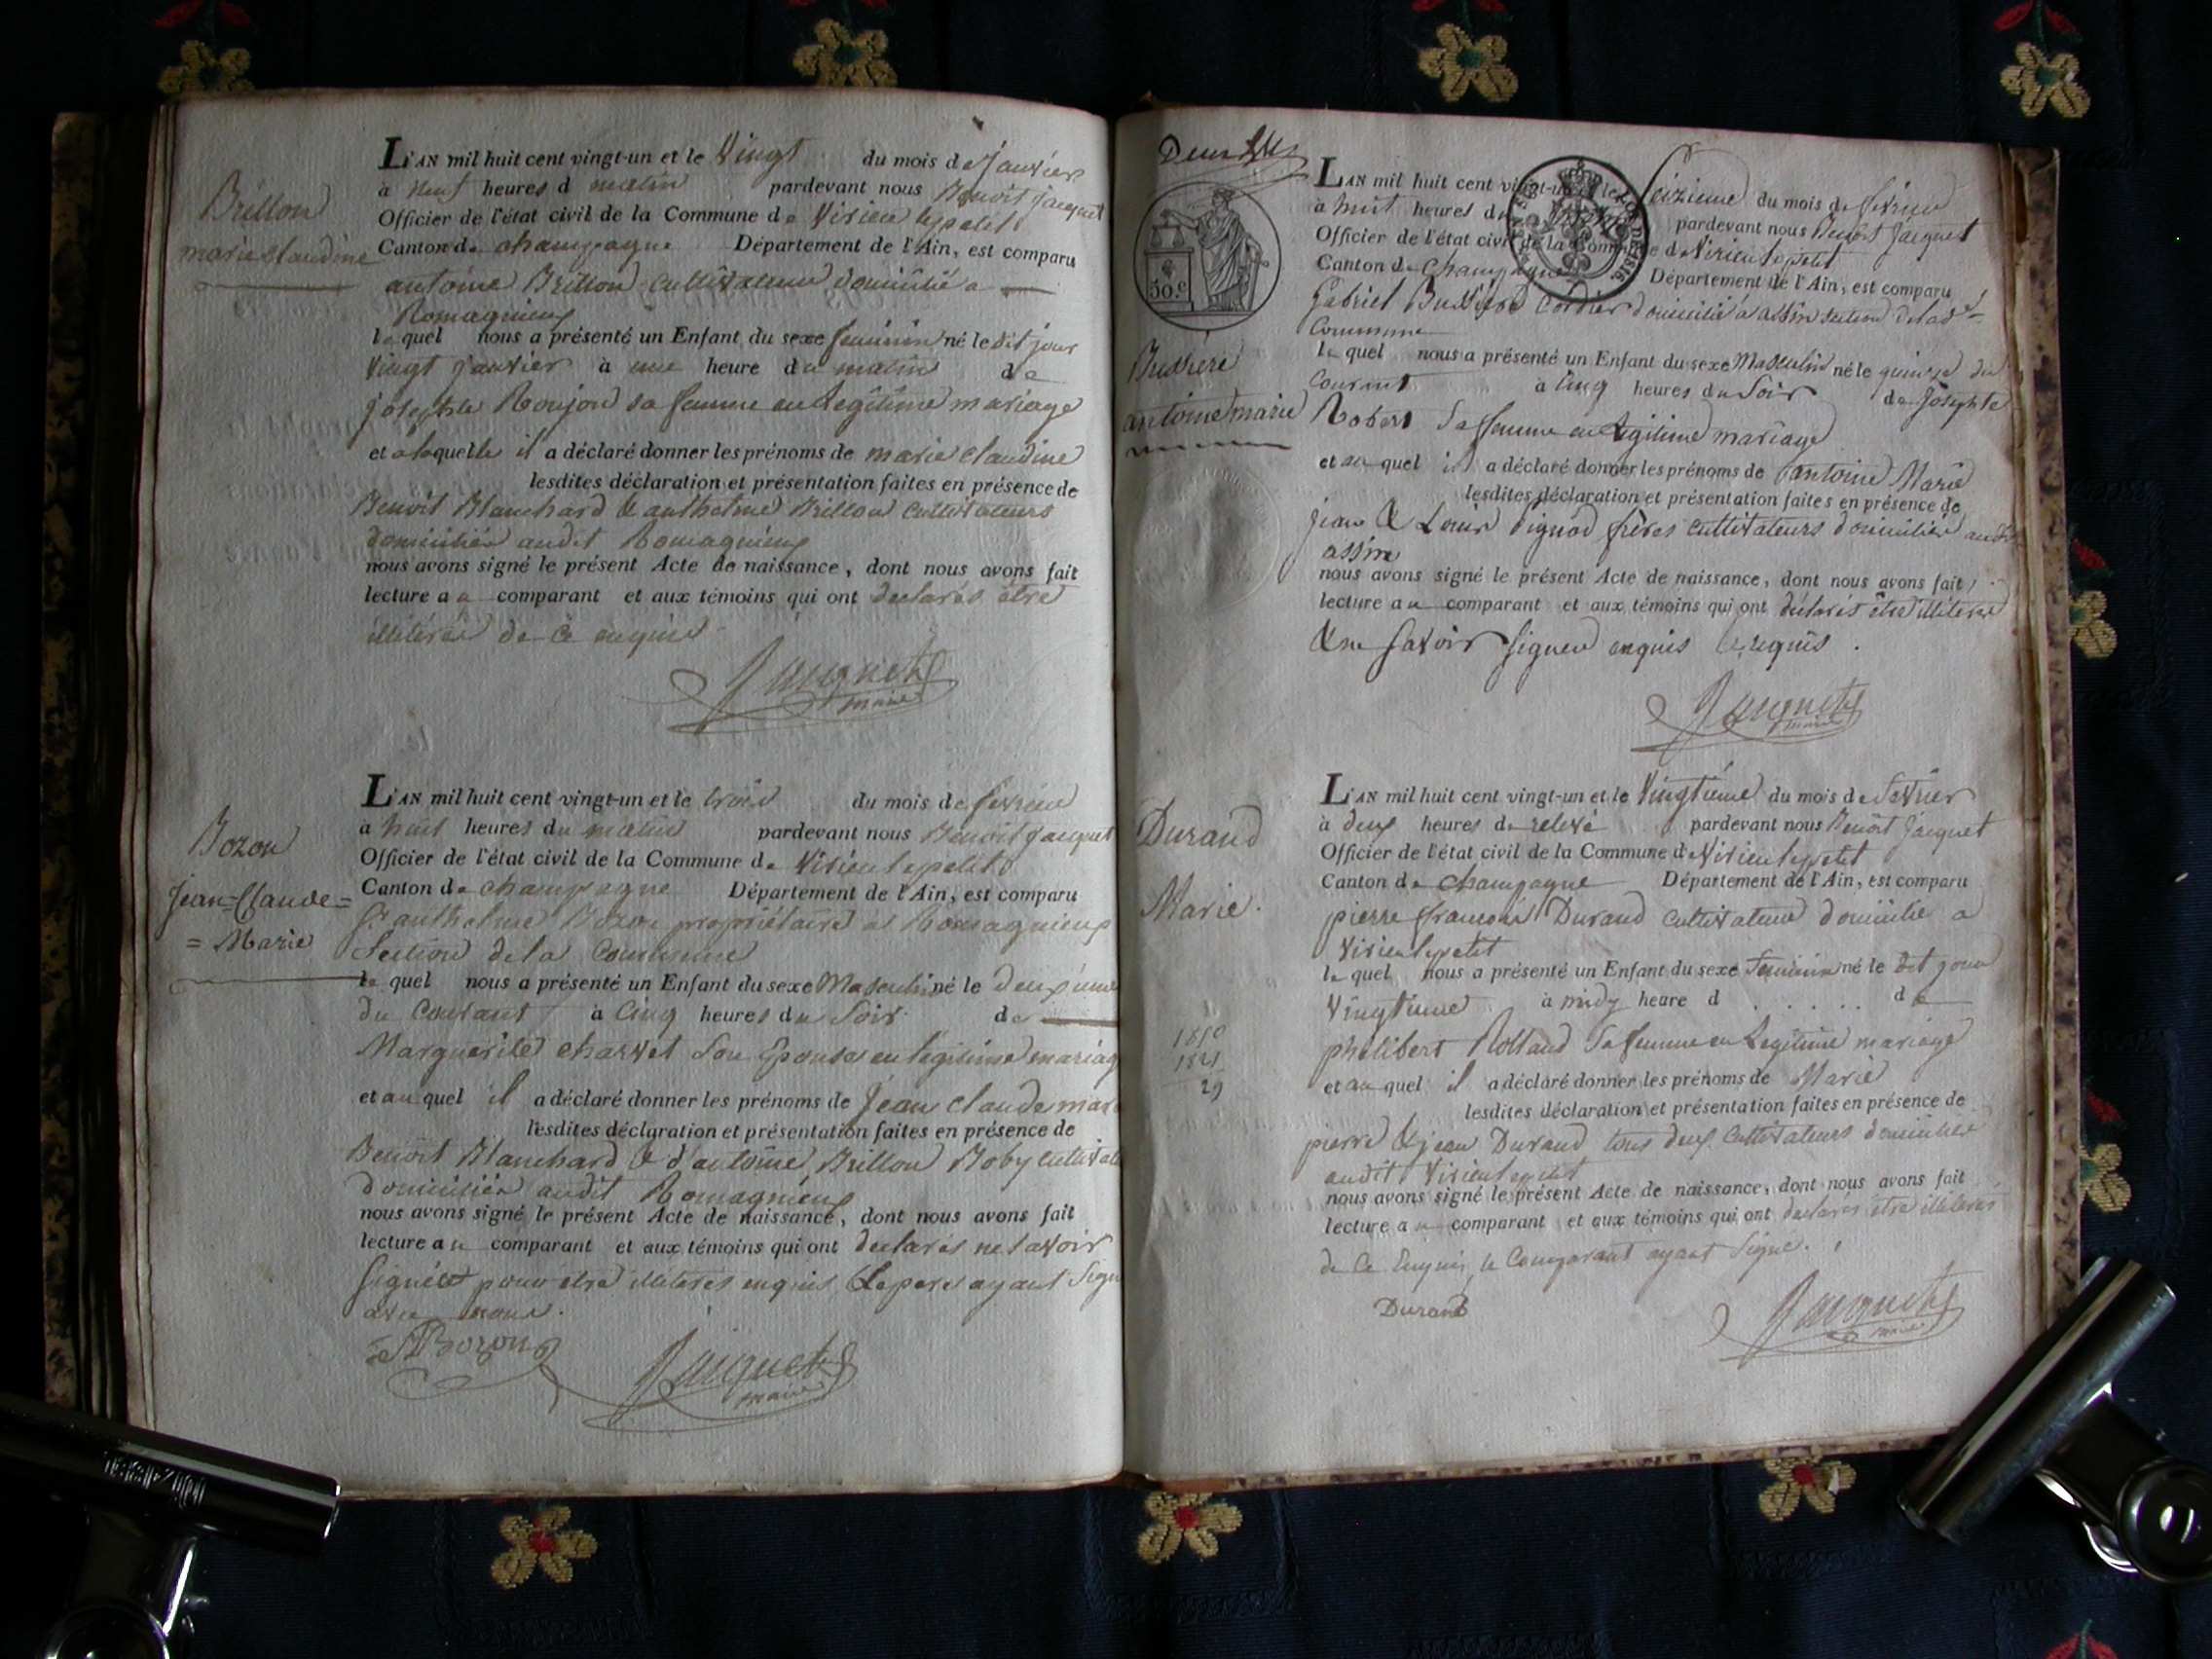 Brillon
marie Claudine
L'AN mil huit cent vingt-un et le Vingt du mois de janvier
à neuf heures d matin pardevant nous Benoit Jacquet
Officier de l'état civil de la Commune de Virieu lepetit
Canton de champagne Département de l'Ain, est comparu
antoine Brillon cultivateur domicilié a
Romagnieux
lequel nous a présenté un Enfant du sexe feminin né le dit jour
Vingt janvier à une heure du matin de
josephte Roujon sa femme en Legitime mariage
et a laquelle il a déclaré donner les prénoms de marie claudine
lesdites déclaration et présentation faites en présence de
Benoit Blanchard & anthelme Brillon cultivateurs
domiciliés audit Romagnieux
nous avons signé le présent Acte de naissance, dont nous avons fait
lecture au comparant et aux témoins qui ont declarés être
illiterés de ce enquis
Jacquet
maire
Bozon
Jean=Claude=
=Marie
L'AN mil huit cent vingt-un et le trois du mois de fevrier
à huit heures du matin pardevant nous Benoit Jacquet
Officier de l'état civil de la Commune de Virieu lepetit
Canton de champagne Département de l'Ain, est comparu
Sr anthelme Bozon propriétaire a Romagnieux
Section de la Commune
lequel nous a présenté un Enfant du sexe Masculin né le deuxieme
du Courant à Cinq heures du Soir de
Marguerite charvet son Epouse en legitime mariag
et au quel il a déclaré donner les prénoms de Jean claude mar
lesdites déclaration et présentation faites en présence de
Benoit Blanchard & d'antoine Brillon Boby cultivat
domiciliés audit Romagnieux
nous avons signé le présent Acte de naissance, dont nous avons fait
lecture au comparant et aux témoins qui ont declarés ne savoir
signer pour être illiterés enquis Le pere ayant Signé
avec nous.
ABozon
Jacquet
maire
Deux
50.c
Bussiere
antoine marie
L'AN mil huit cent vingt-un et le Seizieme du mois de fevrier
à huit heures du pardevant nous Benoit Jacquet
Officier de l'état civil de la Commune de Virieu lepetit
Canton de Champagne Département de l'Ain, est comparu
Gabriel Bussiere Cordier domicilié a assin section de lad
Commune
lequel nous a présenté un Enfant du sexe Masculin né le quinze du
Courant à Cinq heures du Soir de Josephte
Robert Sa femme en Legitime mariage
et au quel il a déclaré donner les prénoms de antoine Marie
lesdites déclaration et présentation faites en présence de
jean & Louis Vignod frères cultivateurs domiciliés audit
assin
nous avons signé le présent Acte de naissance, dont nous avons fait
lecture au comparant et aux témoins qui ont déclarés être illiterés
& ne savoir Signer enquis & requis.
Jacquet
maire
Durand
Marie.
1850
1821
29
L'AN mil huit cent vingt-un et le Vingtieme du mois de Fevrier
à deux heures de relevé pardevant nous Benoit Jacquet
Officier de l'état civil de la Commune d Virieu lepetit
Canton de Champagne Département de l'Ain, est comparu
pierre francois Durand cultivateur domicilié a
Virieu lepetit
lequel nous a présenté un Enfant du sexe Feminin né le dit jour
Vingtieme à midy heure d . . . . . de
philibert Rolland Sa femme en Legitime mariage
et au quel il a déclaré donner les prénoms de Marie
lesdites déclaration et présentation faites en présence de
pierre & jean Durand tous deux Cultivateurs domiciliés
audit Virieu lepetit
nous avons signé le présent Acte de naissance, dont nous avons fait
lecture au comparant et aux témoins qui ont declarés être illiterés
de Ce Enquis, le Comparant ayant Signé.
Durand
Jacquet
maire